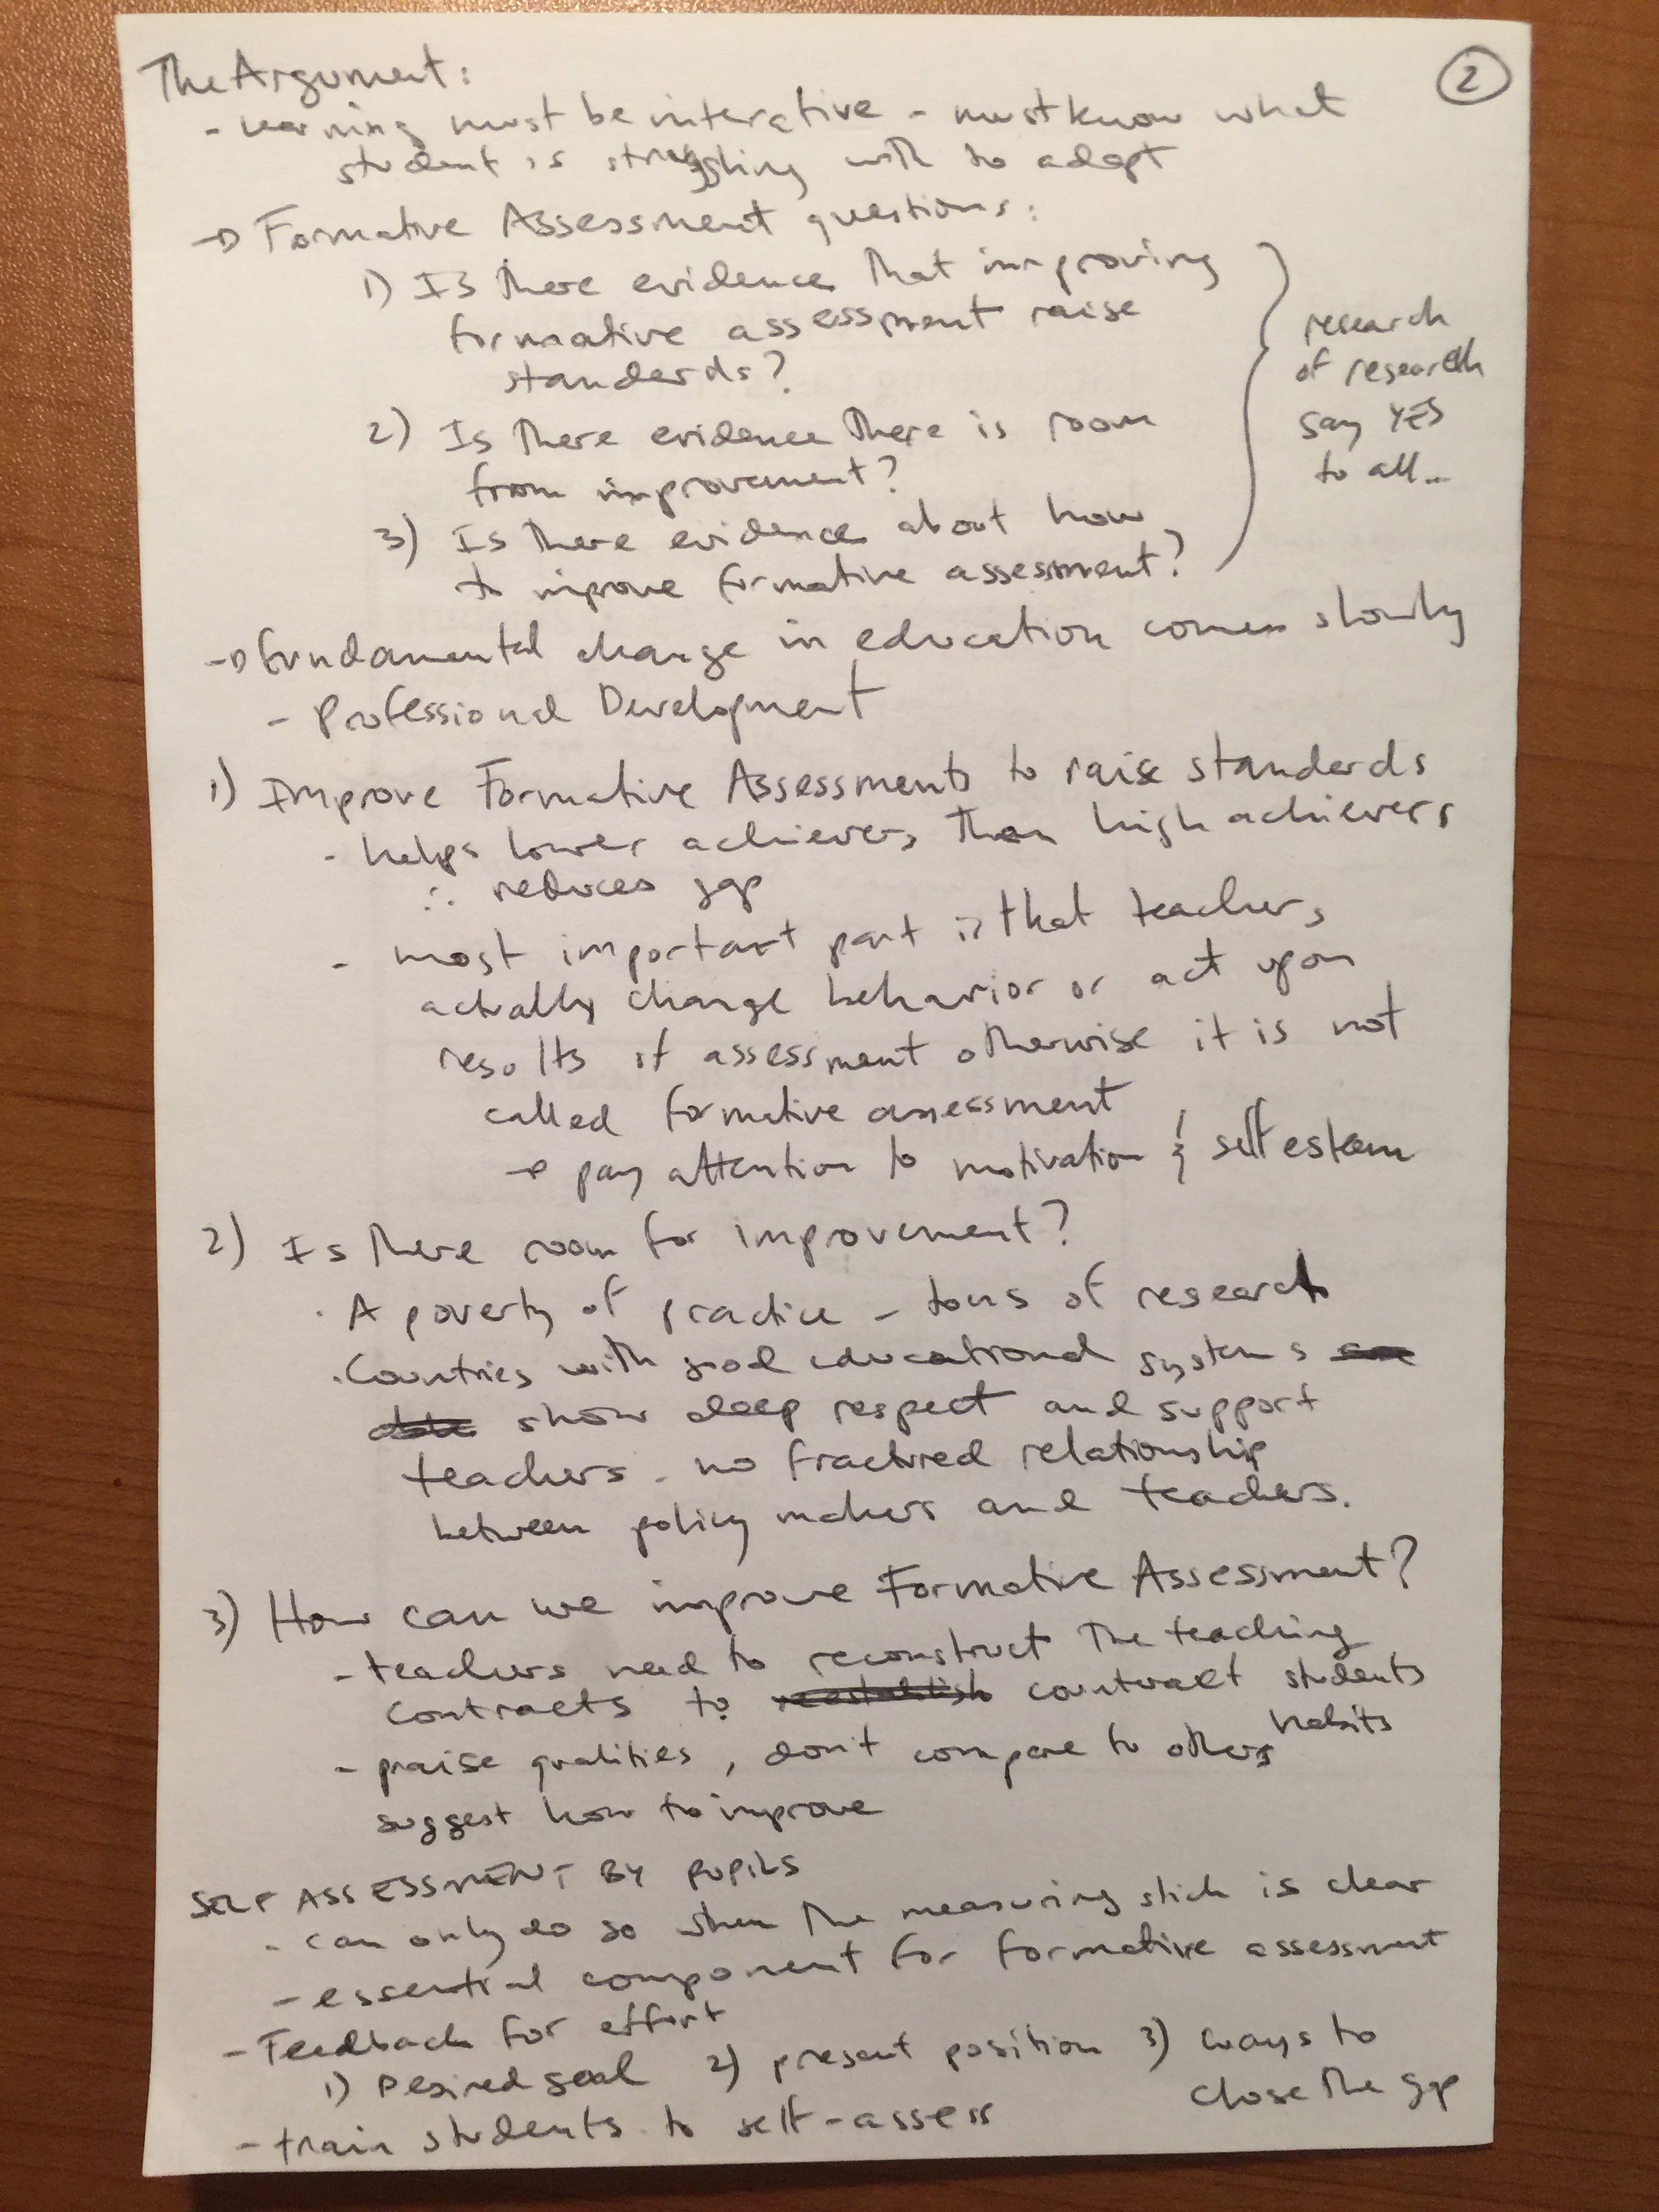 The Argument:
2
- learning must be interactive - must know what
student is struggling with to adapt
→ Formative Assessment questions:
1) Is there evidence that improving
formative assessment raise
standards?
2) Is there evidence there is room
from improvement?
3) Is there evidence about how
to improve formative assessment?
research
of research
say YES
to all...
→ fundamental change in education comes slowly
- Professional Development
1) Improve Formative Assessments to raise standards
- helps lower achievers than high achievers
∴ reduces gap
- most important part is that teachers
actually change behavior or act upon
results of assessment otherwise it is not
called formative assessment
→ pay attention to motivation & self esteem
2) Is there room for improvement?
· A poverty of practice - tons of research
· Countries with good educational systems
show deep respect and support
teachers - no fractured relationship
between policy makers and teachers.
3) How can we improve Formative Assessment?
- teachers need to reconstruct the teaching
contracts to reestablish students
habits
- praise qualities, don't compare to others
suggest how to improve
SELF ASSESSMENT BY PUPILS
- can only do so when the measuring stick is clear
- essential component for formative assessment
- Feedback for effort
1) Desired goal 2) present position 3) ways to
close the gap
- train students to self-assess